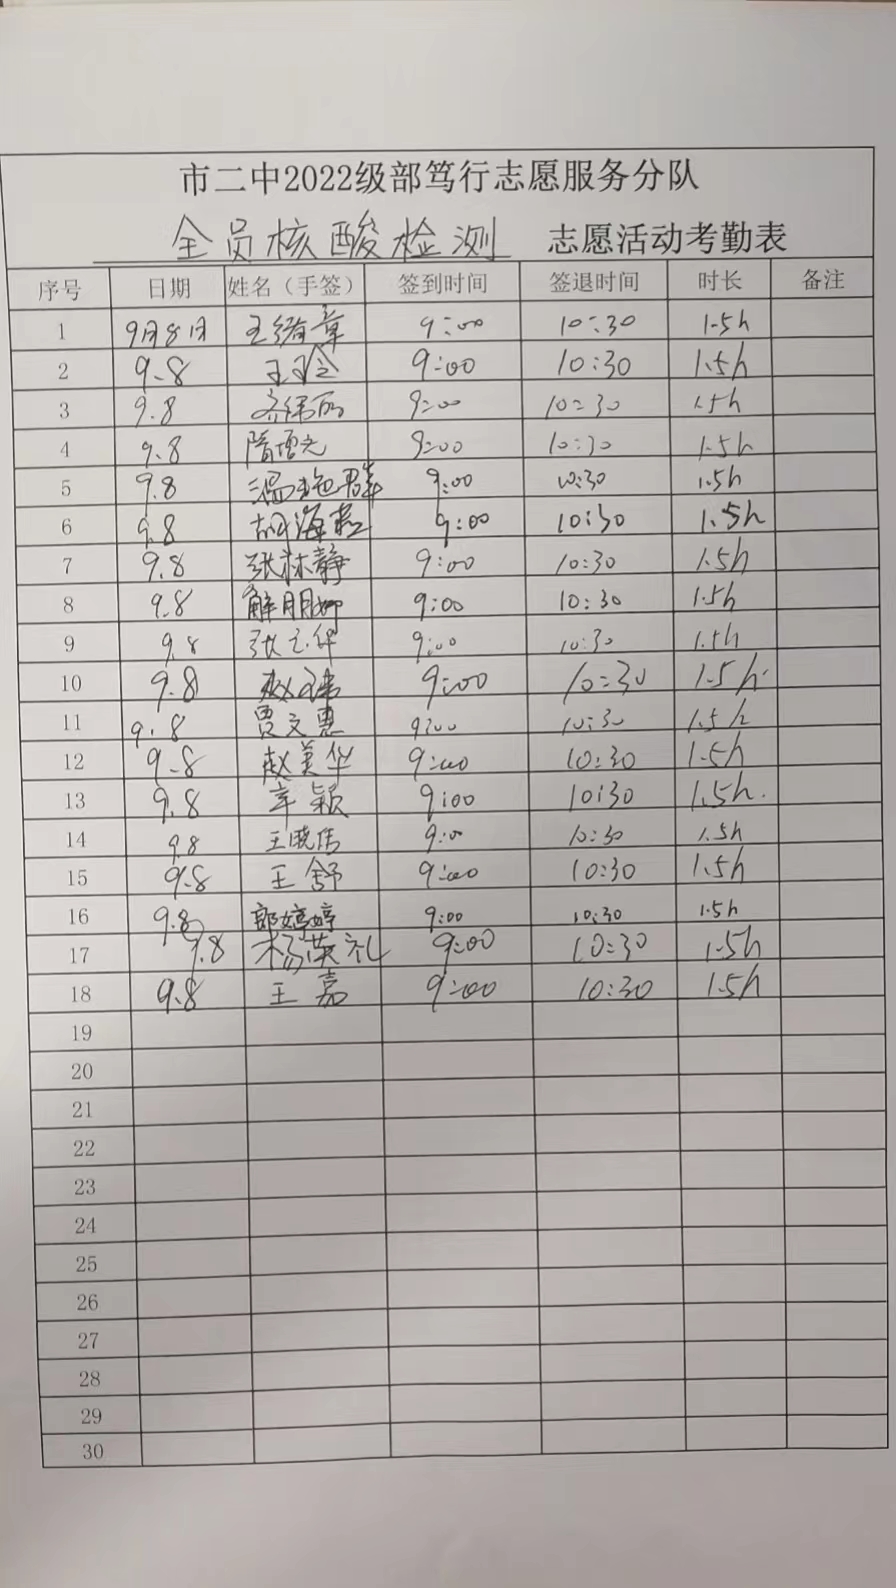 市二中2022级部笃行志愿服务分队
全员核酸检测 志愿活动考勤表
序号 日期 姓名（手签） 签到时间 签退时间 时长 备注
1 9月8日 王绪章 9:00 10:30 1.5h
2 9.8 王玲 9:00 10:30 1.5h
3 9.8 9:00 10:30 1.5h
4 9.8 隋增光 9:00 10:30 1.5h
5 9.8 温艳群 9:00 10:30 1.5h
6 9.8 胡海燕 9:00 10:30 1.5h
7 9.8 张林静 9:00 10:30 1.5h
8 9.8 解朋娜 9:00 10:30 1.5h
9 9.8 张立华 9:00 10:30 1.5h
10 9.8 赵瑞 9:00 10:30 1.5h
11 9.8 贾文惠 9:00 10:30 1.5h
12 9.8 赵美华 9:00 10:30 1.5h
13 9.8 辛颖 9:00 10:30 1.5h
14 9.8 王晓伟 9:00 10:30 1.5h
15 9.8 王舒 9:00 10:30 1.5h
16 9.8 郭婷婷 9:00 10:30 1.5h
17 9.8 杨英礼 9:00 10:30 1.5h
18 9.8 王嘉 9:00 10:30 1.5h
19
20
21
22
23
24
25
26
27
28
29
30